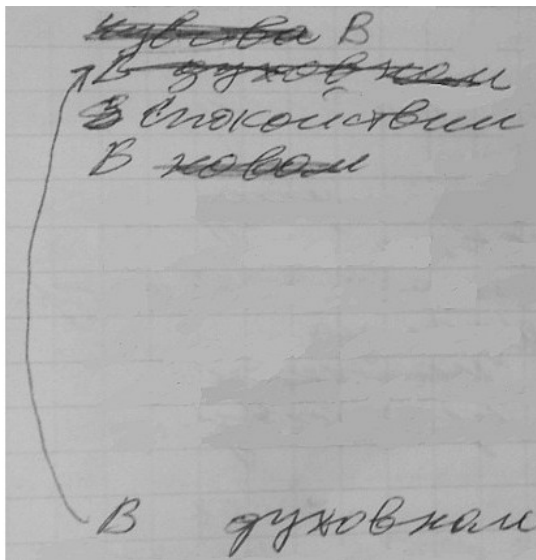 чувства В
В духовном
В спокойствии
В новом
В духовном